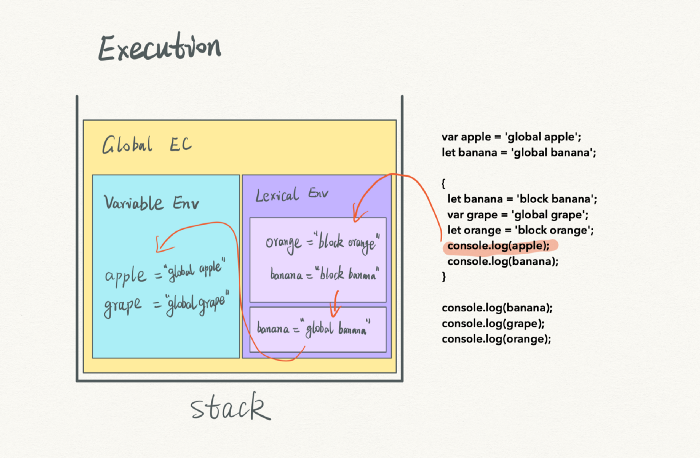 Execution
Global EC
Variable Env
apple = "global apple"
grape = "global grape"
Lexical Env
orange = "block orange"
banana = "block banana"
banana = "global banana"
stack
var apple = 'global apple';
let banana = 'global banana';
{
let banana = 'block banana';
var grape = 'global grape';
let orange = 'block orange';
console.log(apple);
console.log(banana);
}
console.log(banana);
console.log(grape);
console.log(orange);